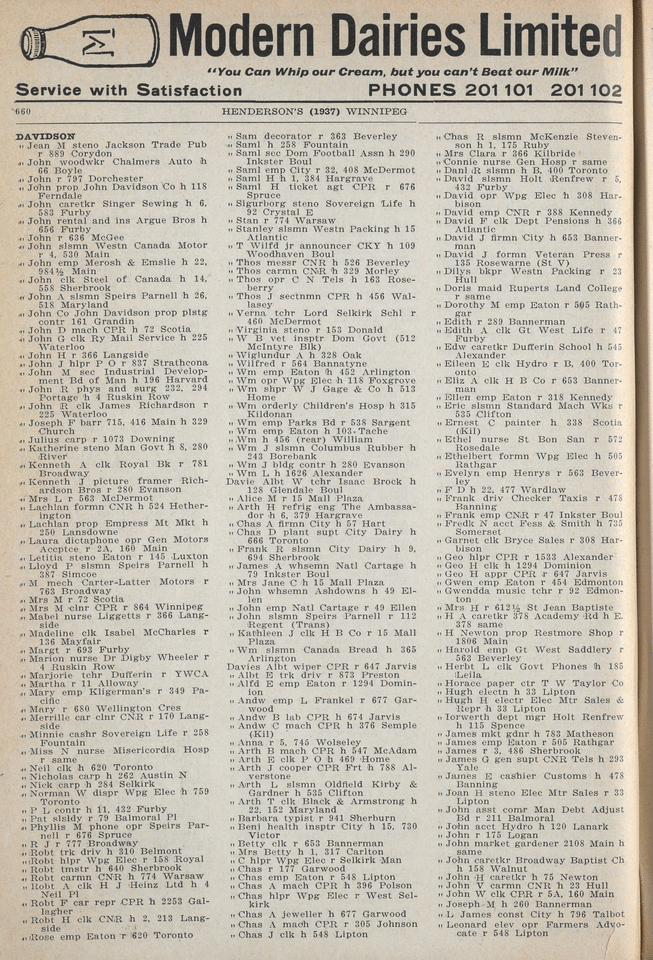 M
Modern Dairies Limited
"You Can Whip our Cream, but you can't Beat our Milk"
Service with Satisfaction PHONES 201 101 201 102
660 HENDERSON'S (1937) WINNIPEG
DAVIDSON
" Jean M steno Jackson Trade Pub
r 889 Corydon
" John woodwkr Chalmers Auto h
66 Boyle
" John r 797 Dorchester
" John prop John Davidson Co h 118
Ferndale
" John caretkr Singer Sewing h 6,
583 Furby
" John rental and ins Argue Bros h
656 Furby
" John r 636 McGee
" John slsmn Westn Canada Motor
r 4, 530 Main
" John emp Merosh & Emslie h 22,
984½ Main
" John clk Steel of Canada h 14,
558 Sherbrook
" John A slsmn Speirs Parnell h 26,
518 Maryland
" John Co John Davidson prop plstg
contr 161 Grandin
" John D mach CPR h 72 Scotia
" John G clk Ry Mail Service h 225
Waterloo
" John H r 366 Langside
" John J hlpr P O r 837 Strathcona
" John M sec Industrial Develop-
ment Bd of Man h 196 Harvard
" John R phys and surg 232, 294
Portage h 4 Ruskin Row
" John R clk James Richardson r
225 Waterloo
" Joseph F barr 715, 416 Main h 329
Church
" Julius carp r 1073 Downing
" Katherine steno Man Govt h 8, 280
River
" Kenneth A clk Royal Bk r 781
Broadway
" Kenneth J picture framer Rich-
ardson Bros r 280 Evanson
" Mrs L r 563 McDermot
" Lachlan formn CNR h 524 Hether-
ington
" Lachlan prop Empress Mt Mkt h
250 Lansdowne
" Laura dictaphone opr Gen Motors
Accptce r 2A, 160 Main
" Letitia steno Eaton r 145 Luxton
" Lloyd P slsmn Speirs Parnell h
387 Simcoe
" M mech Carter-Latter Motors r
763 Broadway
" Mrs M r 72 Scotia
" Mrs M clnr CPR r 864 Winnipeg
" Mabel nurse Liggetts r 366 Lang-
side
" Madeline clk Isabel McCharles r
136 Mayfair
" Margt r 693 Furby
" Marion nurse Dr Digby Wheeler r
4 Ruskin Row
" Marjorie tchr Dufferin r YWCA
" Martha r 11 Alloway
" Mary emp Kligerman's r 349 Pa-
cific
" Mary r 680 Wellington Cres
" Merrille car clnr CNR r 170 Lang-
side
" Minnie cashr Sovereign Life r 258
Fountain
" Miss N nurse Misericordia Hosp
r same
" Neil clk h 620 Toronto
" Nicholas carp h 262 Austin N
" Nick carp h 284 Selkirk
" Norman W dispr Wpg Elec h 759
Toronto
" P L contr h 11, 432 Furby
" Pat slsldy r 79 Balmoral Pl
" Phyllis M phone opr Speirs Par-
nell r 676 Spruce
" R J r 777 Broadway
" Robt trk driv h 310 Belmont
" Robt hlpr Wpg Elec r 158 Royal
" Robt tmstr h 640 Sherbrook
" Robt carmn CNR h 774 Warsaw
" Robt A clk H J Heinz Ltd h 4
Neil Pl
" Robt F car repr CPR h 2253 Gal-
lagher
" Robt H clk CNR h 2, 213 Lang-
side
" Rose emp Eaton r 620 Toronto
" Sam decorator r 363 Beverley
" Saml h 258 Fountain
" Saml sec Dom Football Assn h 290
Inkster Boul
" Saml emp City r 32, 408 McDermot
" Saml H h 1, 384 Hargrave
" Saml H ticket agt CPR r 676
Spruce
" Sigurborg steno Sovereign Life h
92 Crystal E
" Stan r 774 Warsaw
" Stanley slsmn Westn Packing h 15
Atlantic
" T Wilfd jr announcer CKY h 109
Woodhaven Boul
" Thos messr CNR h 526 Beverley
" Thos carmn CNR h 329 Morley
" Thos opr C N Tels h 163 Rose-
berry
" Thos J sectnmn CPR h 456 Wal-
lasey
" Verna tchr Lord Selkirk Schl r
460 McDermot
" Virginia steno r 153 Donald
" W B vet insptr Dom Govt (512
McIntyre Blk)
" Wiglundur A h 328 Oak
" Wilfred r 564 Bannatyne
" Wm emp Eaton h 452 Arlington
" Wm opr Wpg Elec h 118 Foxgrove
" Wm shpr W J Gage & Co h 513
Home
" Wm orderly Children's Hosp h 315
Kildonan
" Wm emp Parks Bd r 538 Sargent
" Wm emp Eaton h 103 Tache
" Wm h 456 (rear) William
" Wm J slsmn Columbus Rubber h
243 Borebank
" Wm J bldg contr h 280 Evanson
" Wm L h 1626 Alexander
Davie Albt W tchr Isaac Brock h
128 Glendale Boul
" Alice M r 15 Mall Plaza
" Arth H refrig eng The Ambassa-
dor h 6, 379 Hargrave
" Chas A firmn City h 57 Hart
" Chas D plant supt City Dairy h
666 Toronto
" Frank R slsmn City Dairy h 9,
694 Sherbrook
" James A whsemn Natl Cartage h
79 Inkster Boul
" Mrs Jane C h 15 Mall Plaza
" John whsemn Ashdowns h 49 El-
len
" John emp Natl Cartage r 49 Ellen
" John slsmn Speirs Parnell r 112
Regent (Trans)
" Kathleen J clk H B Co r 15 Mall
Plaza
" Wm slsmn Canada Bread h 365
Arlington
Davies Albt wiper CPR r 647 Jarvis
" Albt E trk driv r 873 Preston
" Alfd E emp Eaton r 1294 Domin-
ion
" Andw emp L Frankel r 677 Gar-
wood
" Andw B lab CPR h 674 Jarvis
" Andw C mach CPR h 376 Semple
(Kil)
" Anna r 5, 745 Wolseley
" Arth B mach CPR h 547 McAdam
" Arth E clk P O h 469 Home
" Arth J cooper CPR Frt h 788 Al-
verstone
" Arth L slsmn Oldfield Kirby &
Gardner h 535 Clifton
" Arth T clk Black & Armstrong h
22, 152 Maryland
" Barbara typist r 941 Sherburn
" Beni health insptr City h 15, 730
Victor
" Betty clk r 653 Bannerman
" Mrs Betty h 1, 317 Carlton
" C hlpr Wpg Elec r Selkirk Man
" Chas r 177 Garwood
" Chas emp Eaton r 548 Lipton
" Chas A mach CPR h 396 Polson
" Chas hlpr Wpg Elec r West Sel-
kirk
" Chas A jeweller h 677 Garwood
" Chas A mach CPR r 305 Johnson
" Chas J clk h 548 Lipton
" Chas R slsmn McKenzie Steven-
son h 1, 175 Ruby
" Mrs Clara r 366 Kilbride
" Connie nurse Gen Hosp r same
" Danl R slsmn h B, 400 Toronto
" David slsmn Holt Renfrew r 5,
432 Furby
" David opr Wpg Elec h 308 Har-
bison
" David emp CNR r 388 Kennedy
" David F clk Dept Pensions h 366
Atlantic
" David J firmn City h 653 Banner-
man
" David J formn Veteran Press r
135 Rosewarne (St V)
" Dilys bkpr Westn Packing r 23
Hull
" Doris maid Ruperts Land College
r same
" Dorothy M emp Eaton r 505 Rath-
gar
" Edith r 289 Bannerman
" Edith A clk Gt West Life r 47
Furby
" Edw caretkr Dufferin School h 545
Alexander
" Eileen E clk Hydro r B, 400 Tor-
onto
" Eliz A clk H B Co r 653 Banner-
man
" Ellen emp Eaton r 318 Kennedy
" Eric slsmn Standard Mach Wks r
535 Clifton
" Ernest C painter h 338 Scotia
(Kil)
" Ethel nurse St Bon San r 572
Rosedale
" Ethelbert formn Wpg Elec h 505
Rathgar
" Evelyn emp Henrys r 563 Bever-
ley
" F D h 22, 477 Wardlaw
" Frank driv Checker Taxis r 478
Banning
" Frank emp CNR r 47 Inkster Boul
" Fredk N acct Fess & Smith h 735
Somerset
" Garnet clk Bryce Sales r 308 Har-
bison
" Geo hlpr CPR r 1533 Alexander
" Geo H clk h 1294 Dominion
" Geo H appr CPR r 647 Jarvis
" Gwen emp Eaton r 454 Edmonton
" Gwendda music tchr r 92 Edmon-
ton
" Mrs H r 612½ St Jean Baptiste
" H A caretkr 378 Academy Rd h E,
378 same
" H Newton prop Restmore Shop r
1806 Main
" Harold emp Gt West Saddlery r
563 Beverley
" Herbt L clk Govt Phones h 185
Leila
" Horace paper ctr T W Taylor Co
" Hugh electn h 33 Lipton
" Hugh H electr Elec Mtr Sales &
Repr h 33 Lipton
" Iorwerth dept mgr Holt Renfrew
h 115 Spence
" James mkt gdnr h 783 Matheson
" James emp Eaton r 505 Rathgar
" James r 3, 486 Sherbrook
" James G gen supt CNR Tels h 293
Yale
" James E cashier Customs h 478
Banning
" Joan H steno Elec Mtr Sales r 33
Lipton
" John asst comr Man Debt Adjust
Bd r 211 Balmoral
" John acct Hydro h 120 Lanark
" John r 175 Logan
" John market gardener 2108 Main h
same
" John caretkr Broadway Baptist Ch
h 158 Walnut
" John H caretkr h 75 Newton
" John V carmn CNR h 23 Hull
" John W clk CPR r 5A, 160 Main
" Joseph M h 260 Bannerman
" L James const City h 796 Talbot
" Leonard elev opr Farmers Advo-
cate r 548 Lipton